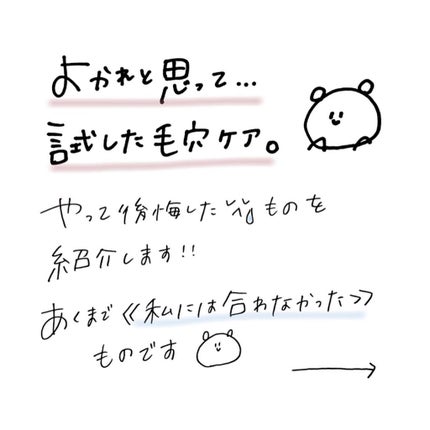 よかれと思って...
試した毛穴ケア。
やって後悔したものを
紹介します!!
あくまで《私には合わなかった》
ものです